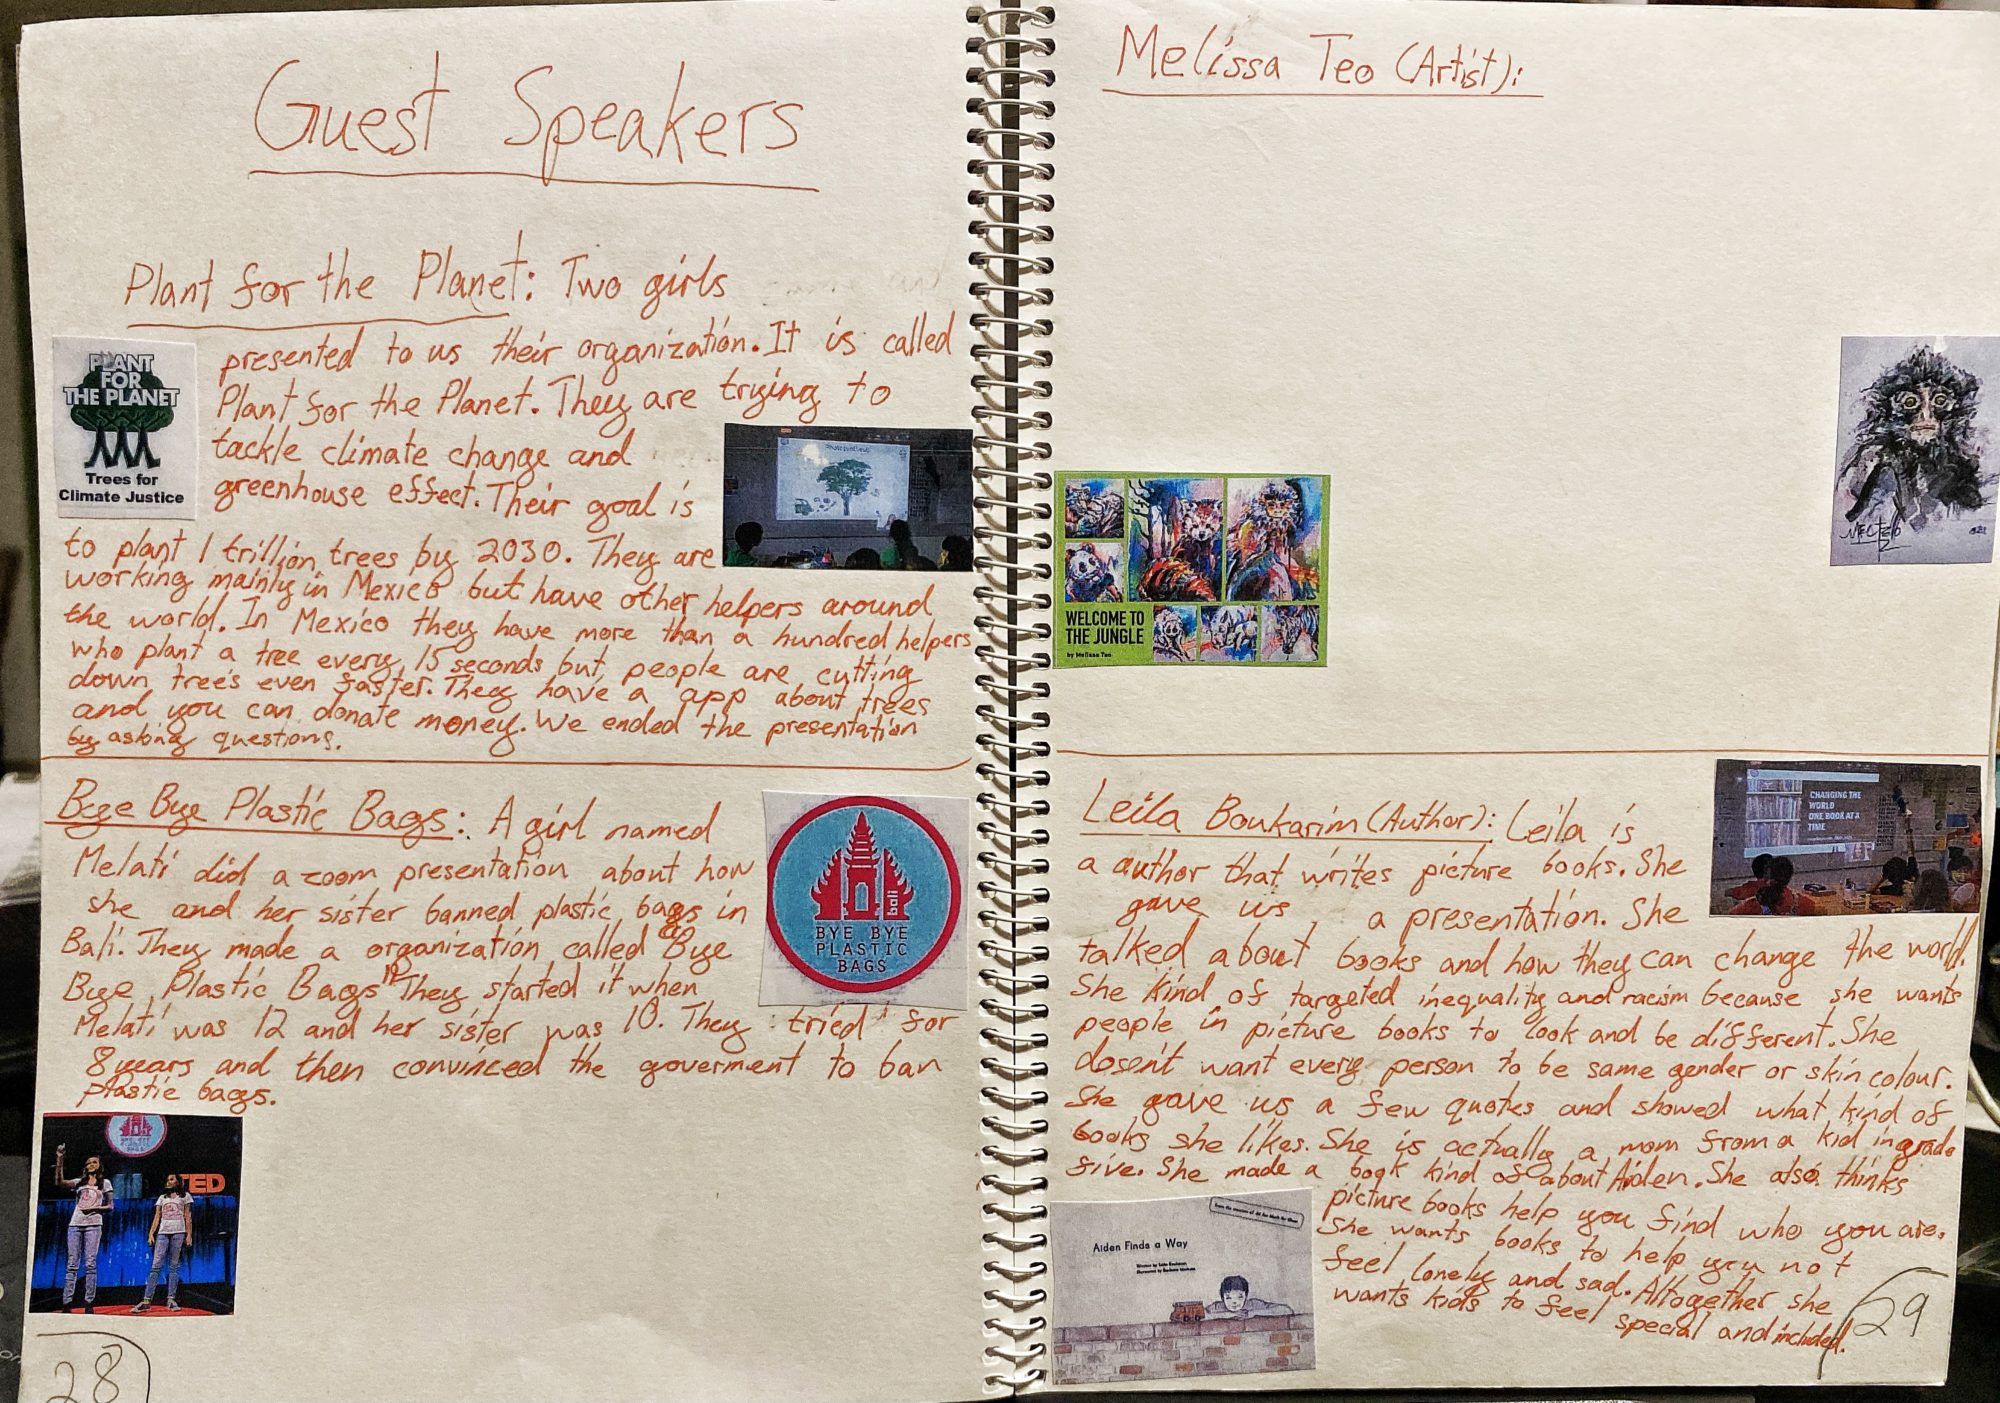 Guest Speakers
Plant for the Planet: Two girls
presented to us their organization. It is called
Plant for the Planet. They are trying to
tackle climate change and
greenhouse effect. Their goal is
to plant 1 trillion trees by 2030. They are
working mainly in Mexico but have other helpers around
the world. In Mexico they have more than a hundred helpers
who plant a tree every 15 seconds but people are cutting
down trees even faster. They have a app about trees
and you can donate money. We ended the presentation
by asking questions.
PLANT
FOR
THE PLANET
Trees for
Climate Justice
Bye Bye Plastic Bags: A girl named
Melati did a zoom presentation about how
she and her sister banned plastic bags in
Bali. They made a organization called "Bye
Bye Plastic Bags" They started it when
Melati was 12 and her sister was 10. They tried for
8 years and then convinced the goverment to ban
plastic bags.
bali
BYE BYE
PLASTIC
BAGS
TED
28
Melissa Teo (Artist):
WELCOME TO
THE JUNGLE
by Melissa Teo
Leila Boukarim (Author): Leila is
a author that writes picture books. She
gave us a presentation. She
talked about books and how they can change the world.
She kind of targeted inequality and racism because she wants
people in picture books to look and be different. She
dosen't want every person to be same gender or skin colour.
She gave us a few quotes and showed what kind of
books she likes. She is actually a mom from a kid in grade
five. She made a book kind of about Aiden. She also thinks
picture books help you find who you are.
She wants books to help you not
feel lonely and sad. Altogether she
wants kids to feel special and included.
CHANGING THE
WORLD
ONE BOOK AT A
TIME
Aiden Finds a Way
29